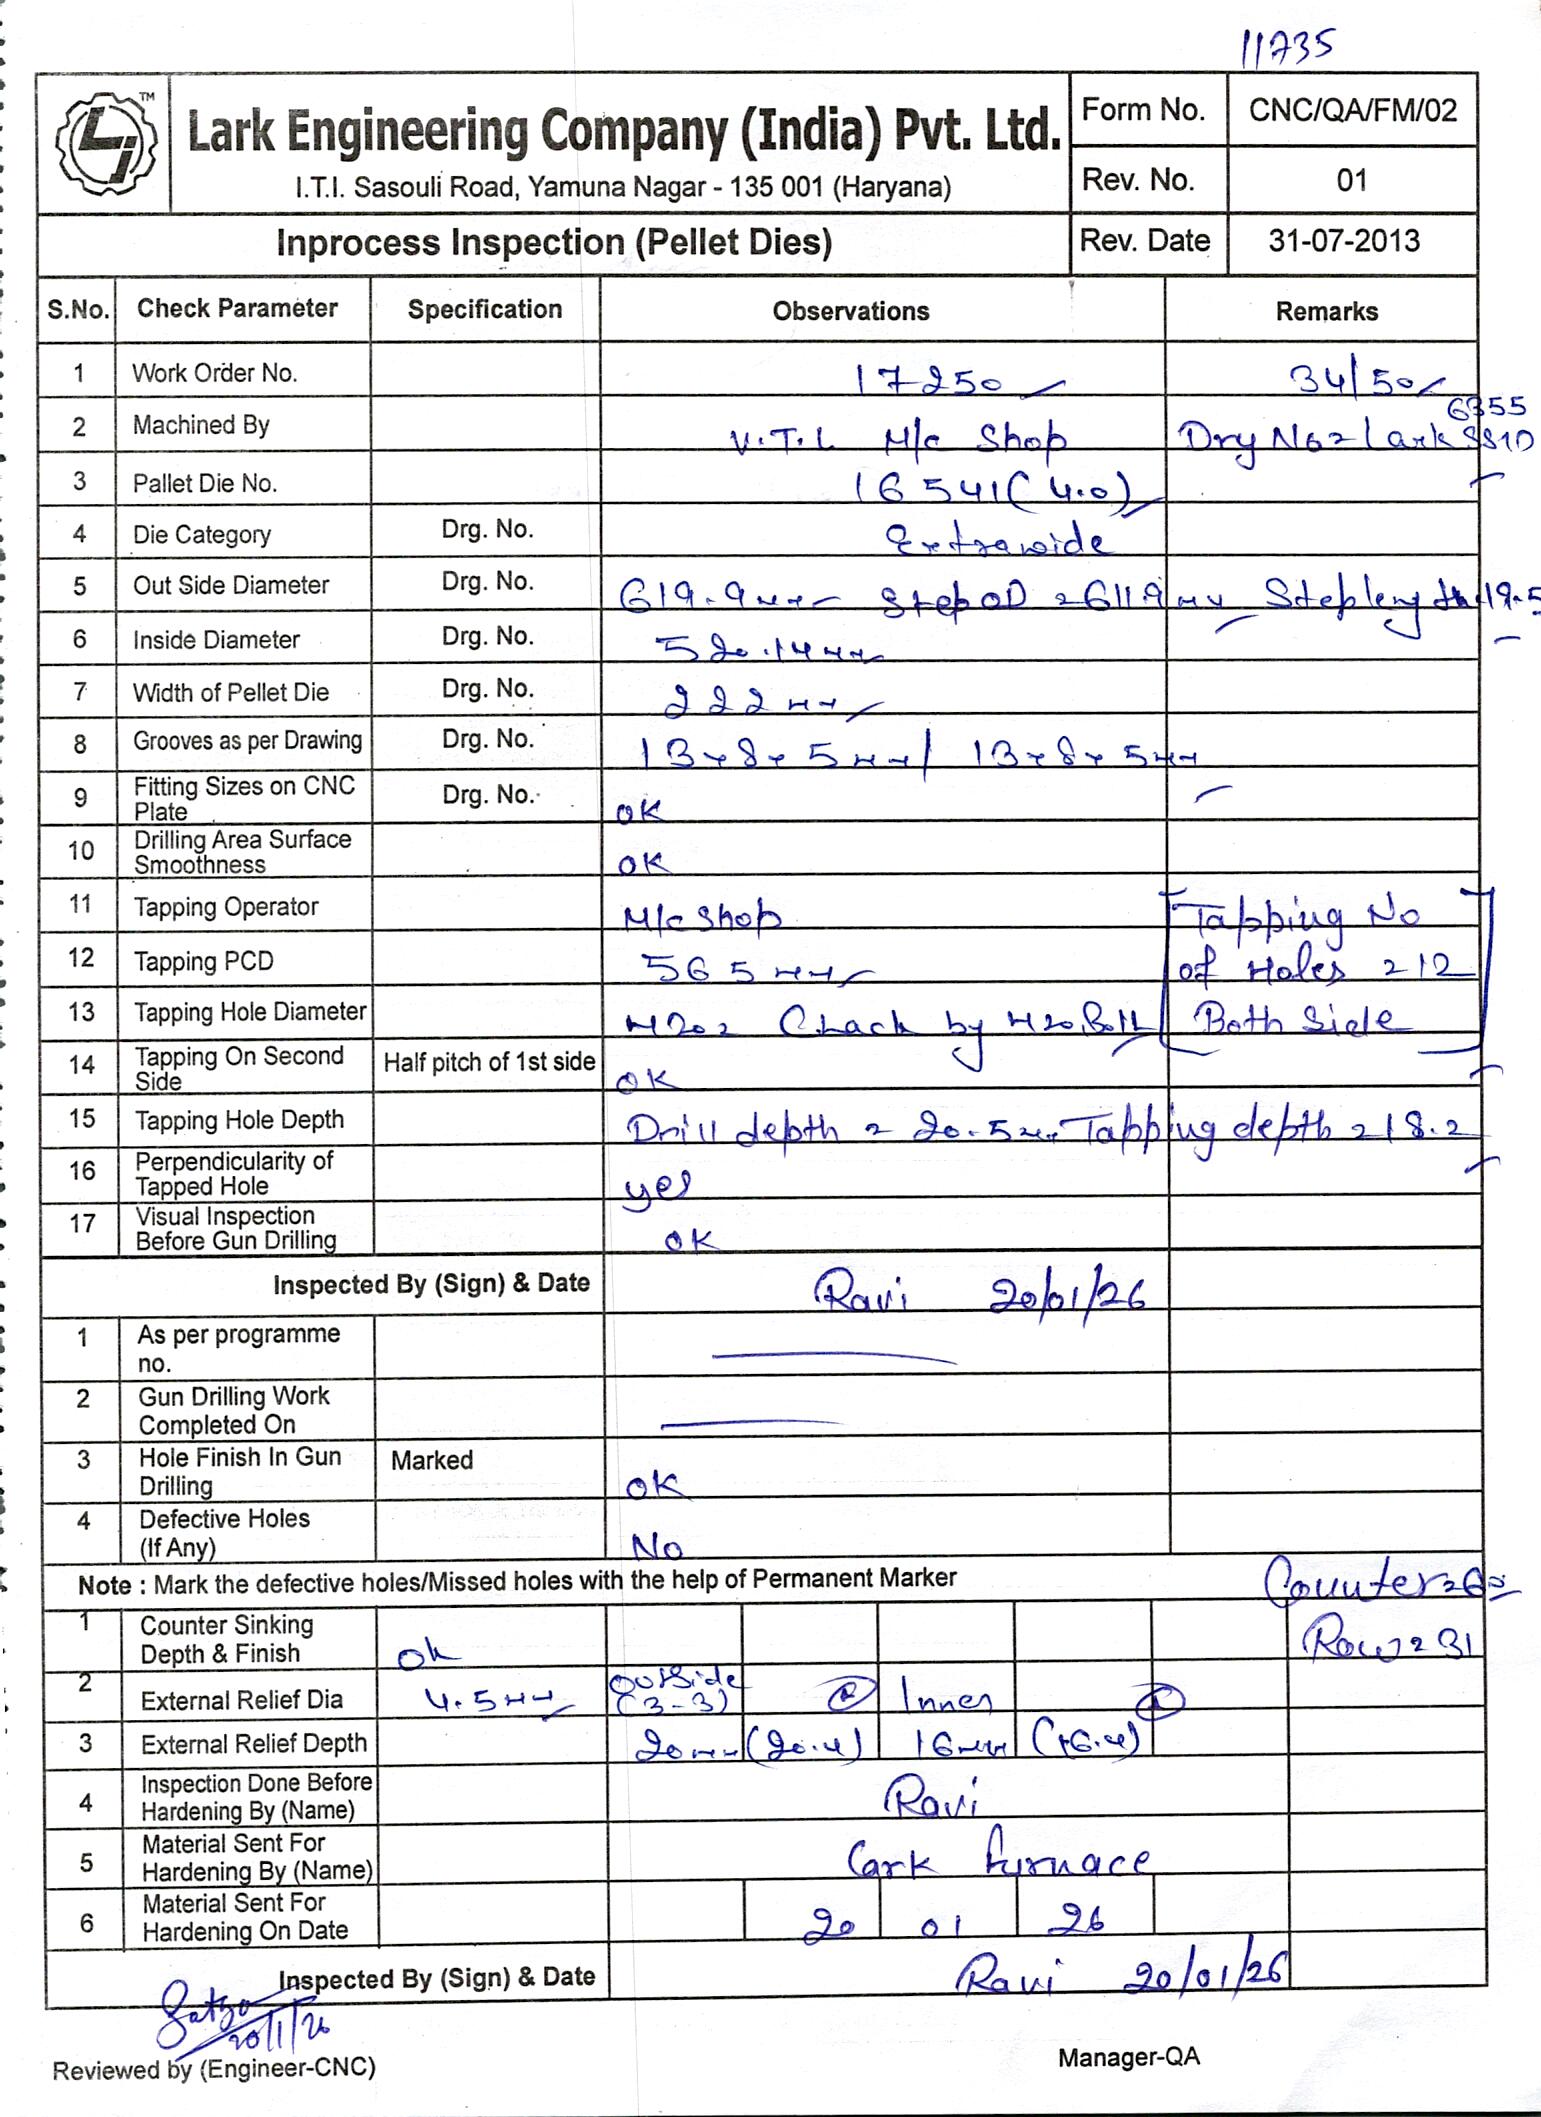 11735
TM
Lark Engineering Company (India) Pvt. Ltd.
I.T.I. Sasouli Road, Yamuna Nagar - 135 001 (Haryana)
Form No. CNC/QA/FM/02
Rev. No. 01
Inprocess Inspection (Pellet Dies) Rev. Date 31-07-2013
S.No. Check Parameter Specification Observations Remarks
1 Work Order No. 17250 34/50
6355
2 Machined By V.T.L M/c Shop Dry No = Lark SS10
3 Pallet Die No. 16541 (4.0)
4 Die Category Drg. No. Extrawide
5 Out Side Diameter Drg. No. 619.9mm Step OD = 611.9mm Step length = 19.5
6 Inside Diameter Drg. No. 520.14mm
7 Width of Pellet Die Drg. No. 222mm
8 Grooves as per Drawing Drg. No. 13x8x5mm / 13x8x5mm
9 Fitting Sizes on CNC Plate Drg. No. OK
10 Drilling Area Surface Smoothness OK
11 Tapping Operator M/c Shop Tapping No
12 Tapping PCD 565mm of Holes = 12
13 Tapping Hole Diameter M20 = Chack by M20 Bolt Both Side
14 Tapping On Second Side Half pitch of 1st side OK
15 Tapping Hole Depth Drill depth = 20.5mm Tapping depth = 18.2
16 Perpendicularity of Tapped Hole yes
17 Visual Inspection Before Gun Drilling OK
Inspected By (Sign) & Date Ravi 20/01/26
1 As per programme no.
2 Gun Drilling Work Completed On
3 Hole Finish In Gun Drilling Marked OK
4 Defective Holes (If Any) No
Note : Mark the defective holes/Missed holes with the help of Permanent Marker Counter = 60
1 Counter Sinking Depth & Finish Ok Row = 31
2 External Relief Dia 4.5mm Outside (3-3) Inner
3 External Relief Depth 20mm (20.4) 16mm (16.4)
4 Inspection Done Before Hardening By (Name) Ravi
5 Material Sent For Hardening By (Name) Lark furnace
6 Material Sent For Hardening On Date 20 01 26
Inspected By (Sign) & Date Ravi 20/01/26
20/1/26
Reviewed by (Engineer-CNC) Manager-QA